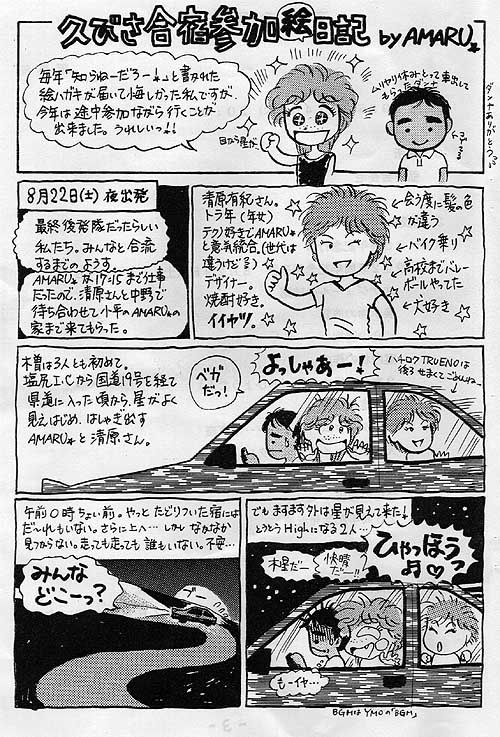 久びさ合宿参加絵日記 by AMARU*
毎年「知らねーだろー!」と書かれた
絵ハガキが届いて悔しかった私ですが、
今年は途中参加ながら行くことが
出来ました。うれしいっ!!
目から星が。
ムリヤリ休みとって車出して
もらったダンナ
ダンナありがとう
8月22日(土) 夜出発
最終後発隊だったらしい
私たち。みんなと合流
するまでのようす。
AMARU*が17:15まで仕事
だったので、清原さんと中野で
待ち合わせて小平のAMARU*の
家まで来てもらった。
清原有紀さん。
トラ年(年女)
テクノ好きでAMARU*
と意気統合。(世代は
違うけど)
デザイナー。
焼酎好き。
イイヤツ。
←会う度に髪の色
が違う
←ベイク乗り
←高校までバレー
ボールやってた
←犬好き
木曽は3人とも初めて。
塩尻I.Cから国道19号を経て
県道に入った頃から、星がよく
見えはじめ、はしゃぎ出す
AMARU*と清原さん。
ベガ
だっ!
よっしゃあー!
ハチロクTRUENOは
後ろせまくてごめんねー
午前0時ちょい前。やっとたどりついた宿には
だ〜れもいない。さらに上へ…しかしなかなか
見つからない。走っても走っても誰もいない。不安…
みんな
どこーっ?
でもますます外は星が見えて来た!
とうとうHighになる2人…
木星だー
快晴
だー!!
ひゃっほう
もーイヤ…
BGMはYMOの「BGM」
-3-